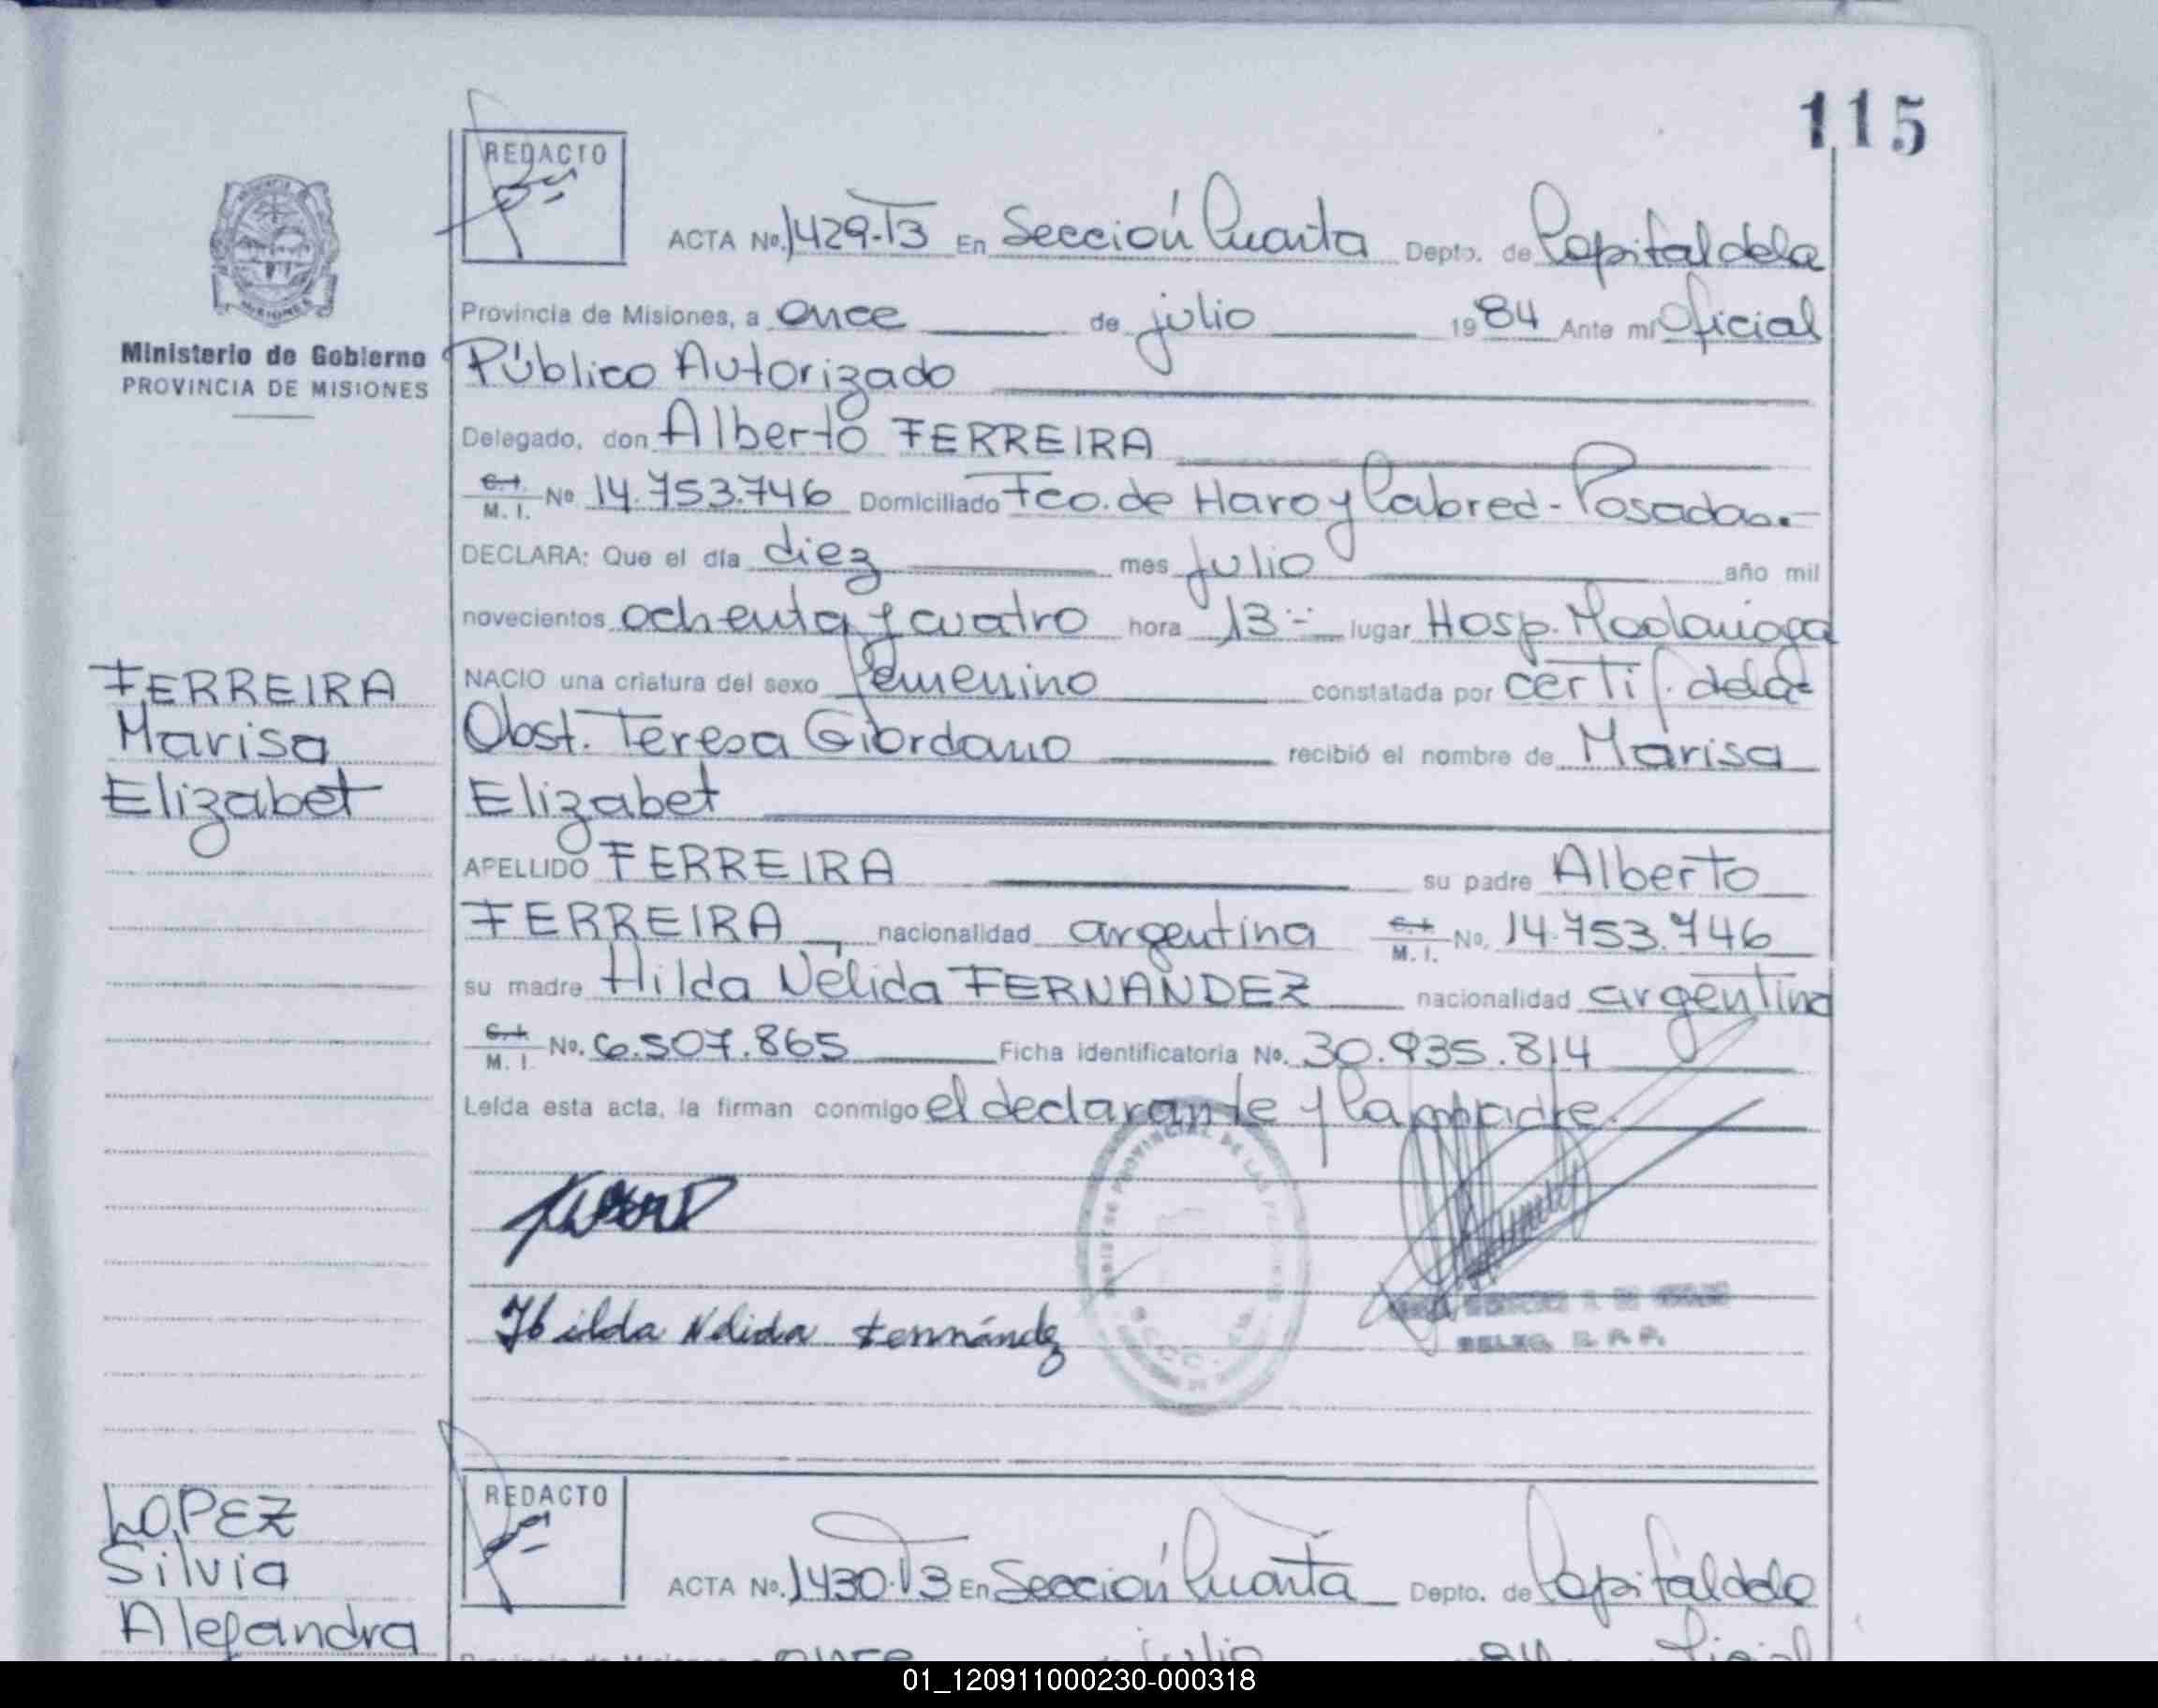 115
REDACTO
ACTA Nº. 1429-T3 En Sección Cuarta Depto. de Capital de la
Provincia de Misiones, a once de julio 1984 Ante mi Oficial
Ministerio de Gobierno
PROVINCIA DE MISIONES
Público Autorizado
Delegado, don Alberto FERREIRA
C.I. M.I. Nº 14.753.746 Domiciliado Fco. de Haro y Cabred - Posadas.-
DECLARA: Que el día diez mes Julio año mil
novecientos ochenta y cuatro hora 13 lugar Hosp. Madariaga
NACIO una criatura del sexo femenino constatada por certif. de la
Obst. Teresa Giordano recibió el nombre de Marisa
Elizabet
FERREIRA
Marisa
Elizabet
APELLIDO FERREIRA su padre Alberto
FERREIRA, nacionalidad argentina C.I. M.I. Nº. 14.753.746
su madre Hilda Nélida FERNANDEZ nacionalidad argentina
C.I. M.I. Nº. 6.507.865 Ficha identificatoria Nº. 30.935.814
Leída esta acta, la firman conmigo el declarante y la madre.
Hilda Nelida Fernández
DELEG. R. P. P.
LOPEZ
Silvia
Alejandra
REDACTO
ACTA Nº. 1430-T3 En Sección Cuarta Depto. de Capital de la
Provincia de Misiones, a once julio 84 Oficial
01_120911000230-000318